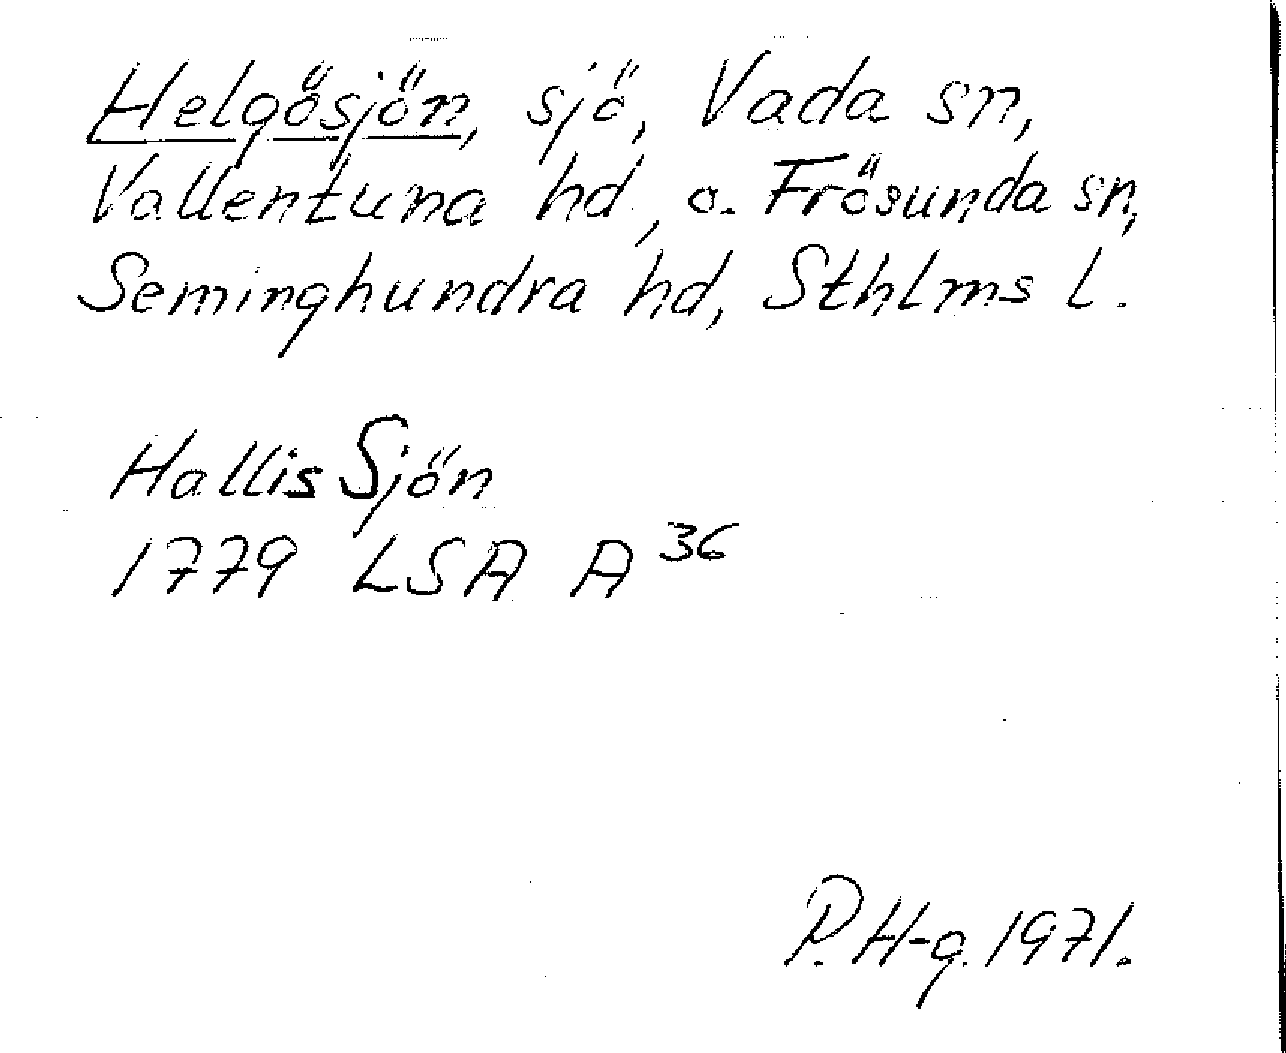 Helgösjön, sjö, Vada sn,
Vallentuna hd, o. Frösunda sn,
Seminghundra hd, Sthlms l.
Hallis Sjön
1779 LSA A 36
P. H-g. 1971.